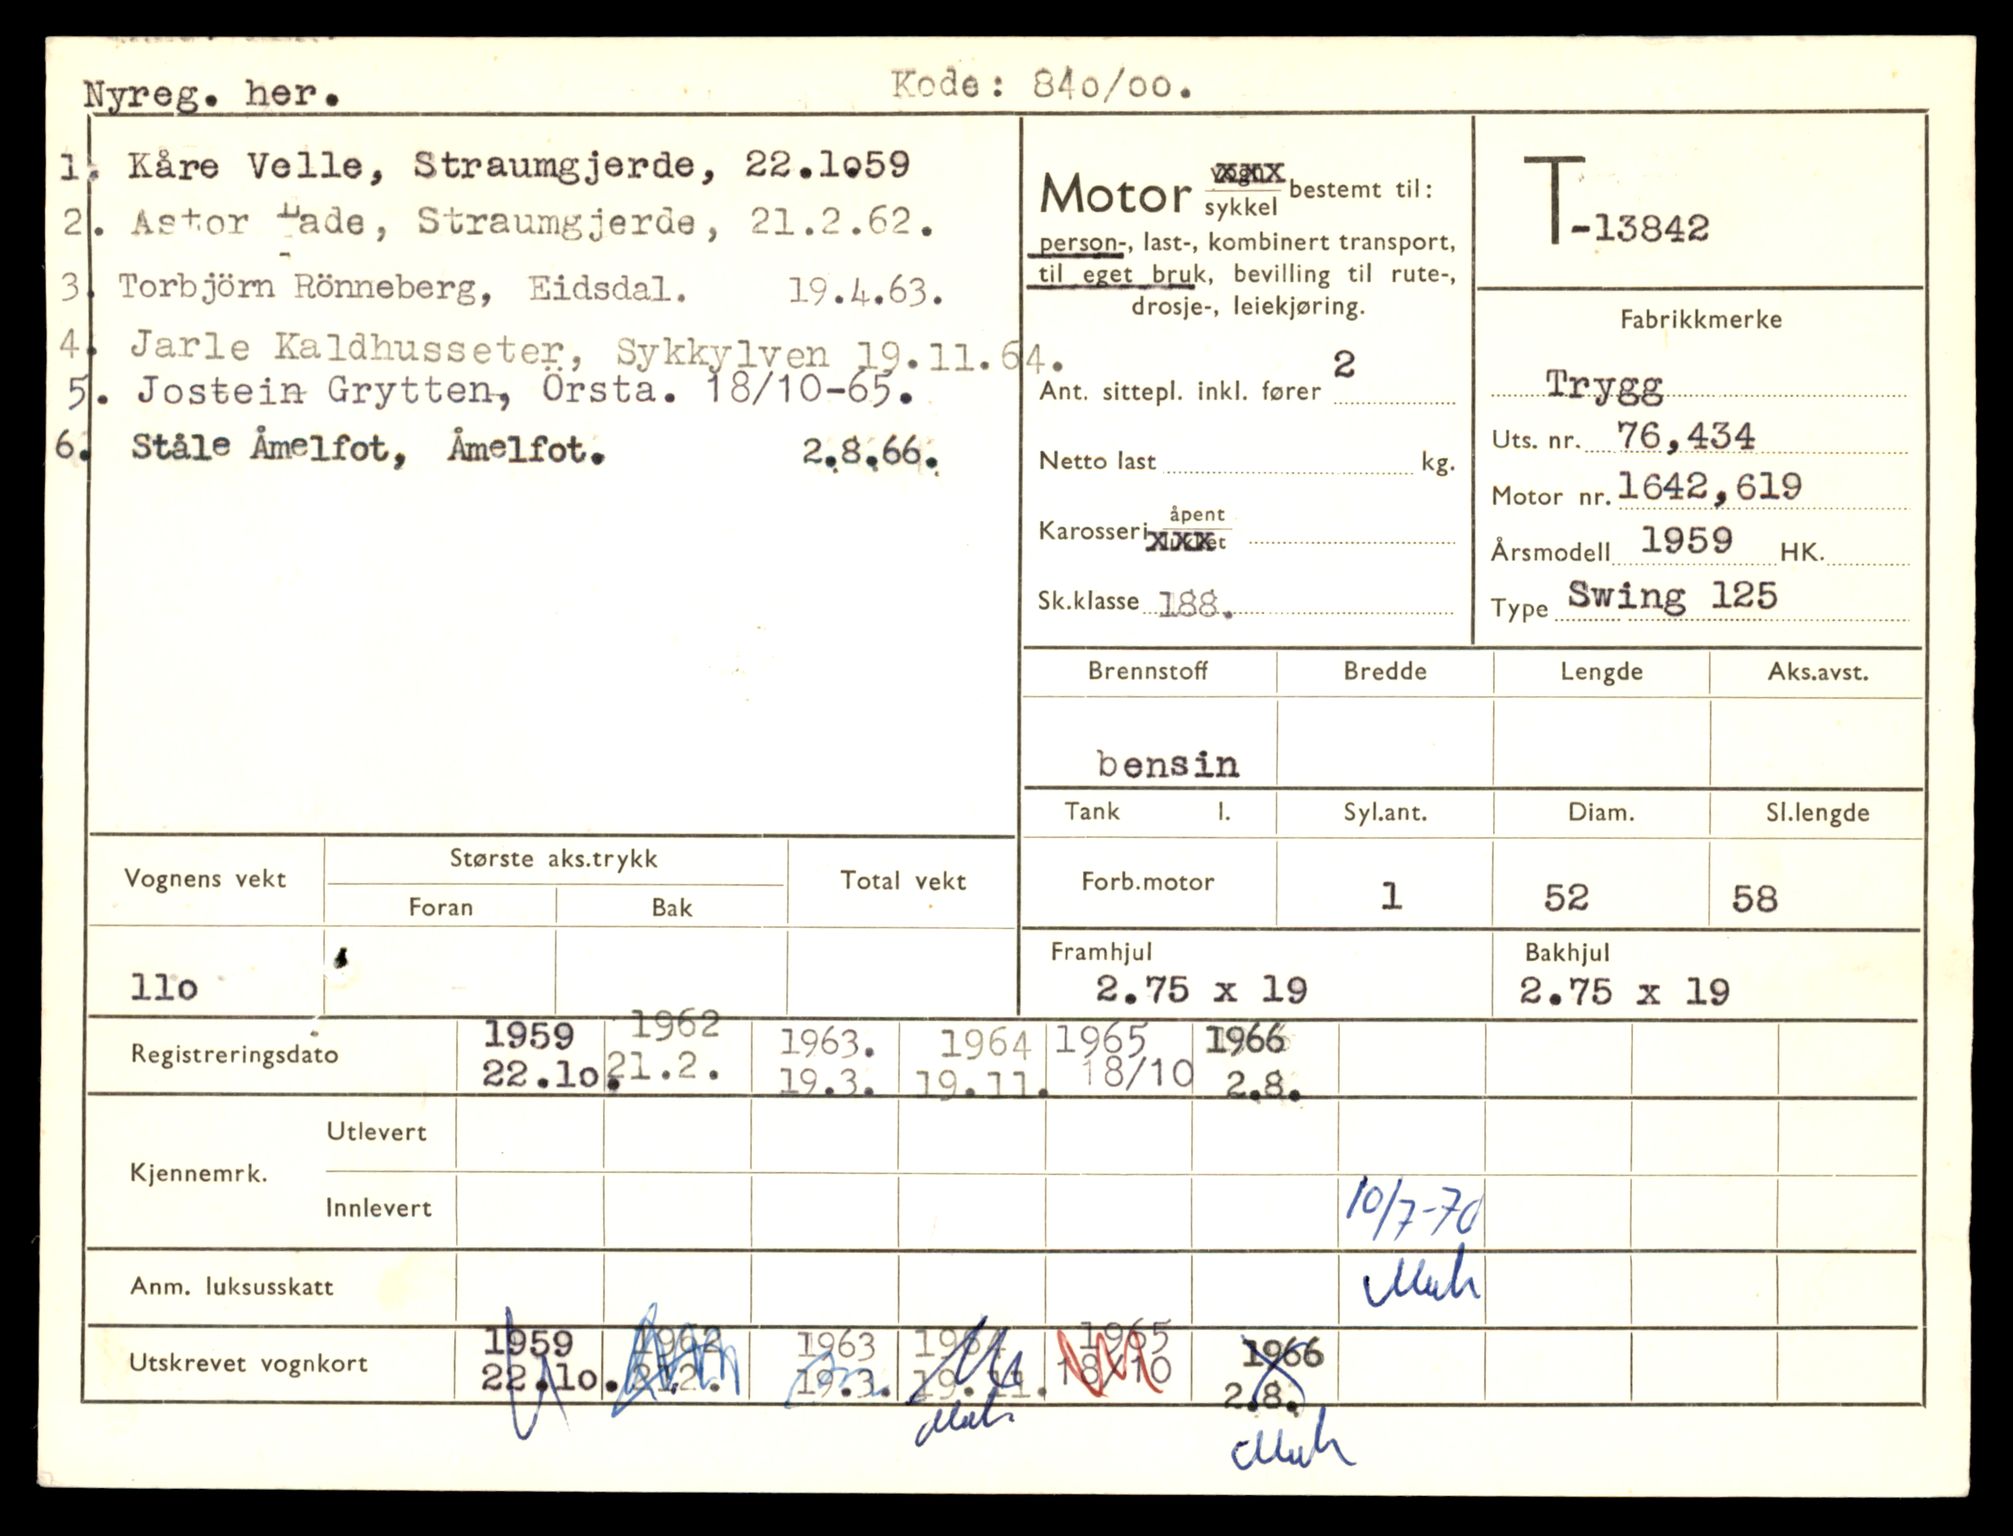 Nyreg. her.
Kode: 840/oo.
1. Kåre Velle, Straumgjerde, 22.1o59
2. Astor Hade, Straumgjerde, 21.2.62.
3. Torbjörn Rönneberg, Eidsdal. 19.4.63.
4. Jarle Kaldhusseter, Sykkylven 19.11.64.
5. Jostein Grytten, Örsta. 18/10-65.
6. Ståle Åmelfot, Åmelfot. 2.8.66.
Motor vogn sykkel bestemt til:
person-, last-, kombinert transport,
til eget bruk, bevilling til rute-,
drosje-, leiekjøring.
Ant. sittepl. inkl. fører 2
Netto last kg.
Karosseri åpent lukket
Sk.klasse 188.
T-13842
Fabrikkmerke
Trygg
Uts. nr. 76,434
Motor nr. 1642,619
Årsmodell 1959 HK.
Type Swing 125
Brennstoff Bredde Lengde Aks.avst.
bensin
Tank l. Syl.ant. Diam. Sl.lengde
Forb.motor 1 52 58
Framhjul Bakhjul
2.75 x 19 2.75 x 19
Vognens vekt Største aks.trykk Total vekt
Foran Bak
11o
Registreringsdato 1959 1962 1963. 1964 1965 1966
22.1o. 21.2. 19.3. 19.11. 18/10 2.8.
Kjennemrk.
Utlevert
Innlevert 10/7-70
Anm. luksusskatt
Utskrevet vognkort 1959 1962 1963 1964 1965 1966
22.1o. 21.2. 19.3. 19.11. 18/10 2.8.